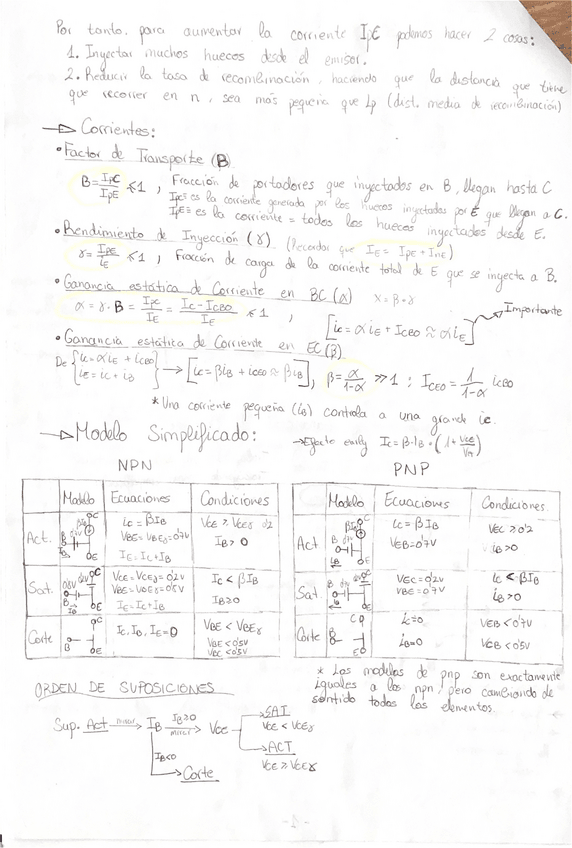 Por tanto, para aumentar la corriente IpC podemos hacer 2 cosas:
1. Inyectar muchos huecos desde el emisor.
2. Reducir la tasa de recombinación, haciendo que la distancia que tiene
que recorrer en n, sea más pequeña que Lp (dist. media de recombinación)
→ Corrientes:
• Factor de Transporte (B)
B = IpC / IpE ≮ 1 , Fracción de portadores que inyectados en B, llegan hasta C
IpC ≡ es la corriente generada por los huecos inyectados por E que llegan a C.
IpE ≡ es la corriente = todos los huecos inyectados desde E.
• Rendimiento de Inyección (γ) (Recordar que IE = IpE + InE)
γ = IpE / iE ≮ 1 , Fracción de carga de la corriente total de E que se inyecta a B.
• Ganancia estática de Corriente en BC (α)
α = γ · B = IpC / IE = IC - ICBO / IE ≮ 1 , [iC = α iE + ICBO ≈ α iE] Importante
• Ganancia estática de Corriente en EC (β)
De { iC = α iE + iCBO
iE = iC + iB } → [iC = β iB + iCEO ≈ β iB] , β = α / 1-α ≫ 1 ; ICEO = 1 / 1-α iCBO
* Una corriente pequeña (iB) controla a una grande ic.
→ Modelo Simplificado: → Efecto early IC = β·IB · (1 + VCE / VA)
NPN PNP
Modelo Ecuaciones Condiciones
Act. iC = βIB VCE ≥ VCEγ 0'2
VBE = VBEγ = 0'7V IB > 0
IE = IC + IB
Sat. VCE = VCEγ = 0'2V IC < βIB
IB ≥ 0
IE = IC + IB
Corte IC, IB, IE = 0 VBE < VBEγ
VBE < 0'5V
VBC < 0'5V
Modelo Ecuaciones Condiciones
Act iC = βIB VEC ≥ 0'2
VEB = 0'7V iB > 0
Sat VEC = 0'2V iC < βIB
iB > 0
Corte iC = 0 VEB < 0'7V
iB = 0 VCB < 0'5V
* Los modelos de pnp son exactamente
iguales a los npn, pero cambiando de
sentido todos los elementos.
ORDEN DE SUPOSICIONES
Sup. Act → mirar IB → IB ≥ 0 mirar VCE → SAT
VCE < VCEγ
→ ACT
VCE ≥ VCEγ
IB < 0
→ Corte
-1-